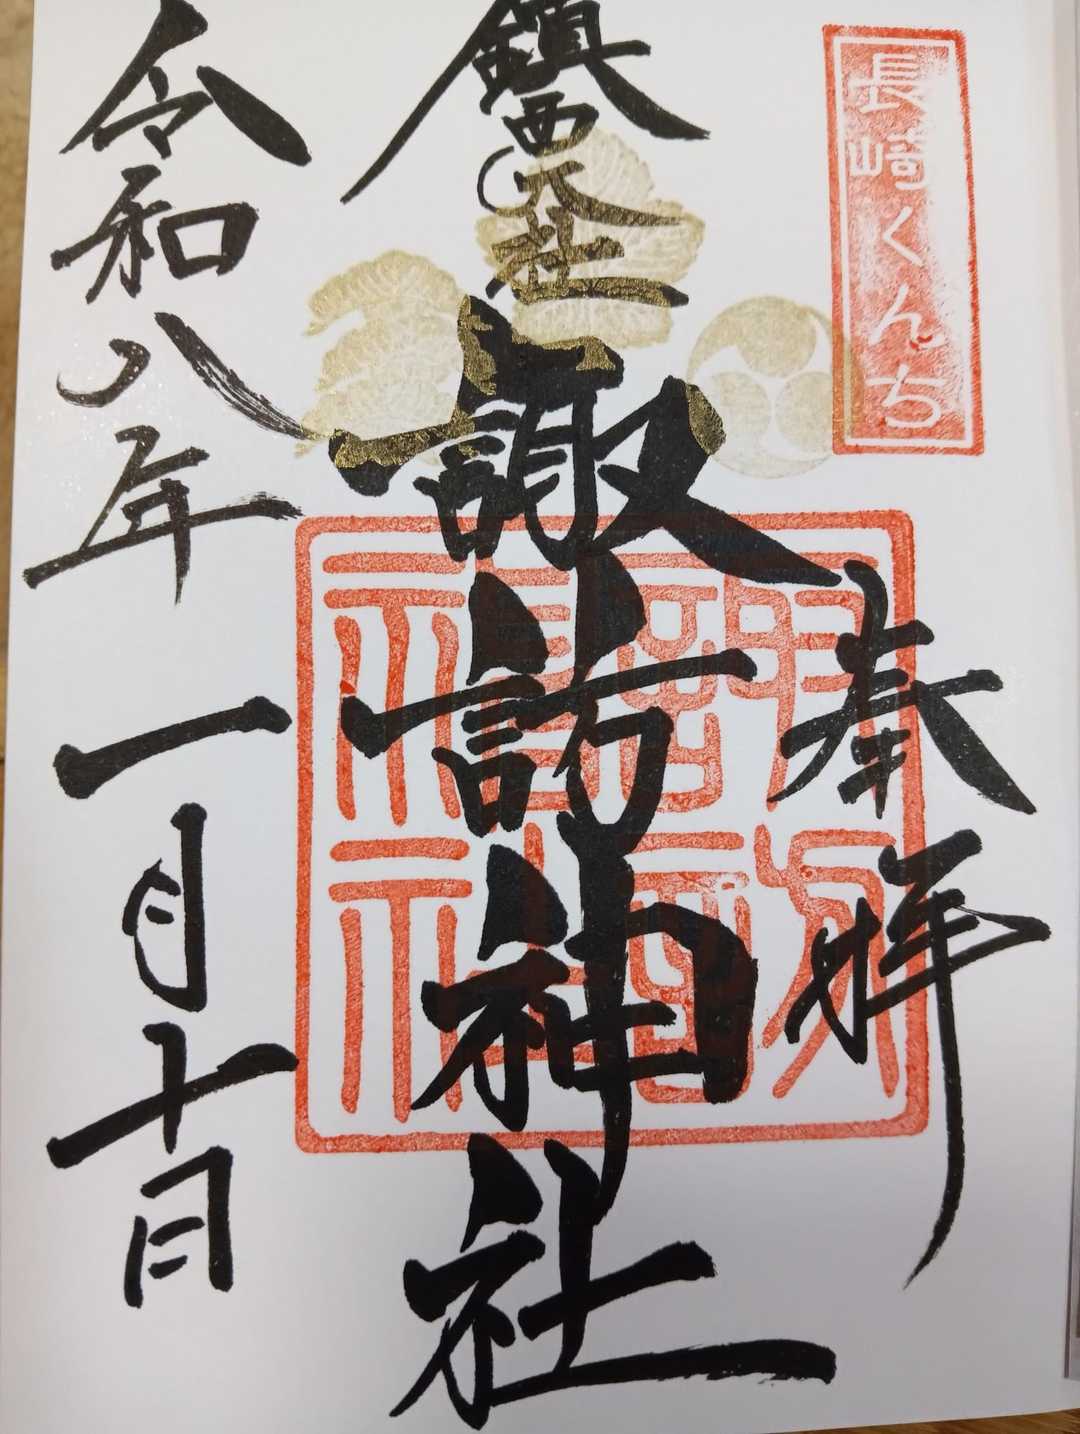 長崎くんち
奉拝
鎮西大社
諏訪神社
令和八年一月十日